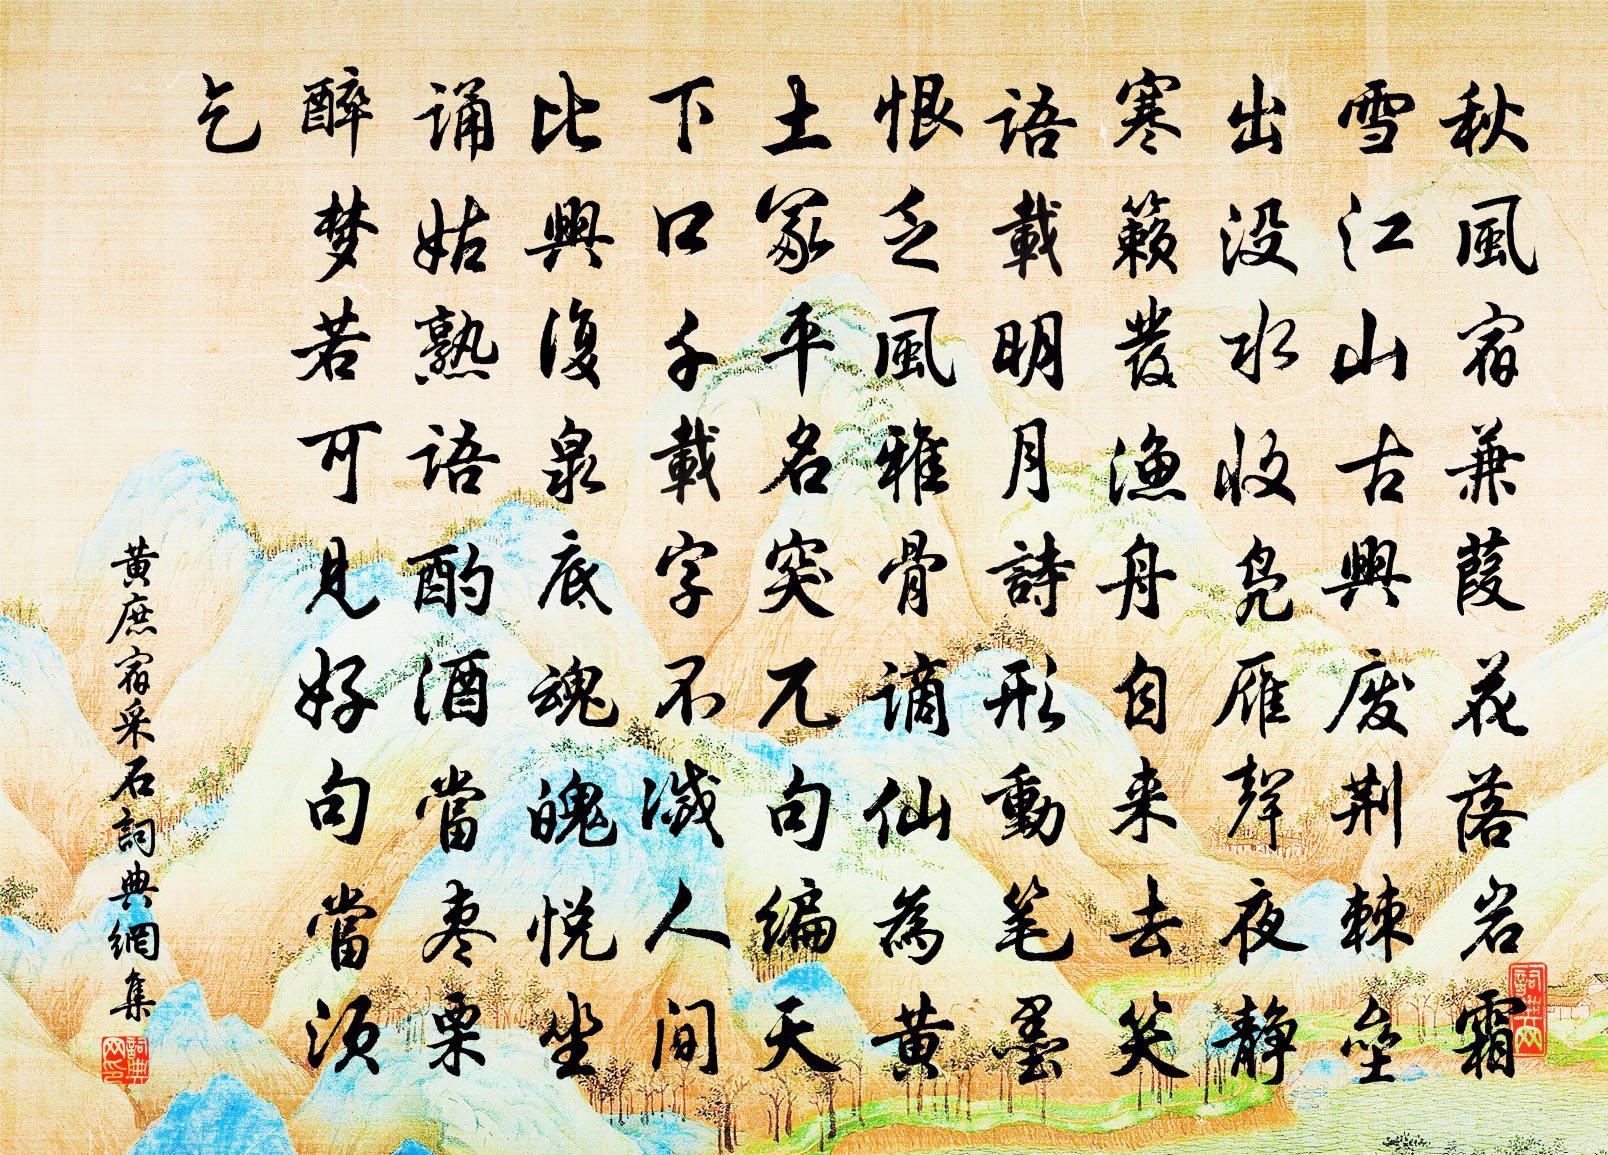 秋風宿兼葭花落岩霜
雪江山古興废荆棘垒
出没水收凫雁聲夜静
寒籁發漁舟自来去笑
語載明月詩形動笔墨
恨乏風雅骨谪仙為黄
土冢平名突兀句编天
下口千載字不滅人间
比興復泉底魂魄悦坐
诵姑熟語酌酒當枣栗
醉梦若可見好句當须
乞
黄庶宿采石詞典網集
詞典网
詞典网印